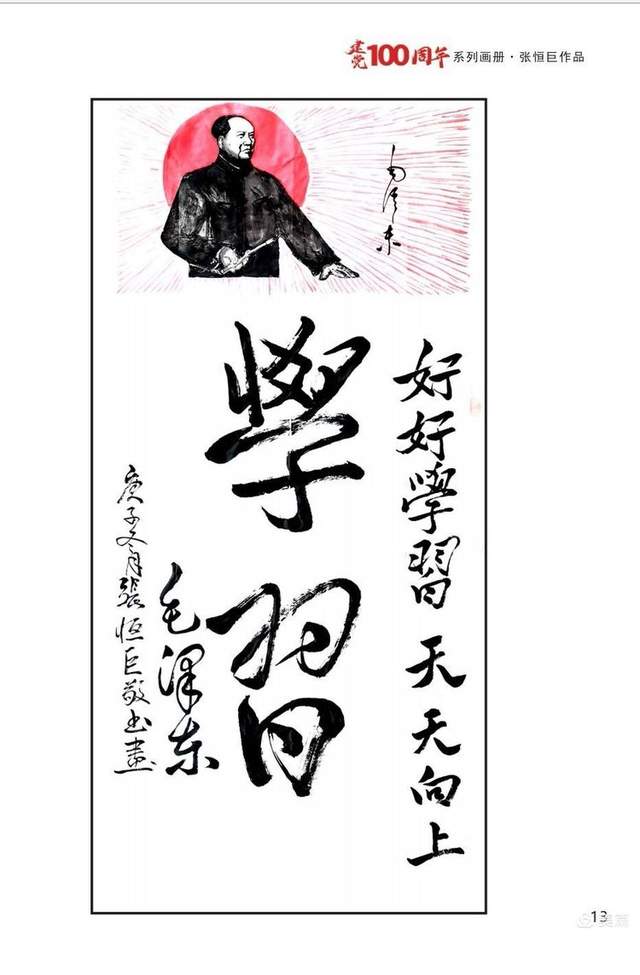 建党100周年 系列画册·张恒巨作品
毛泽东
好好學習 天天向上
學習
毛澤东
庚子月張恒巨敬书畫
13
美篇